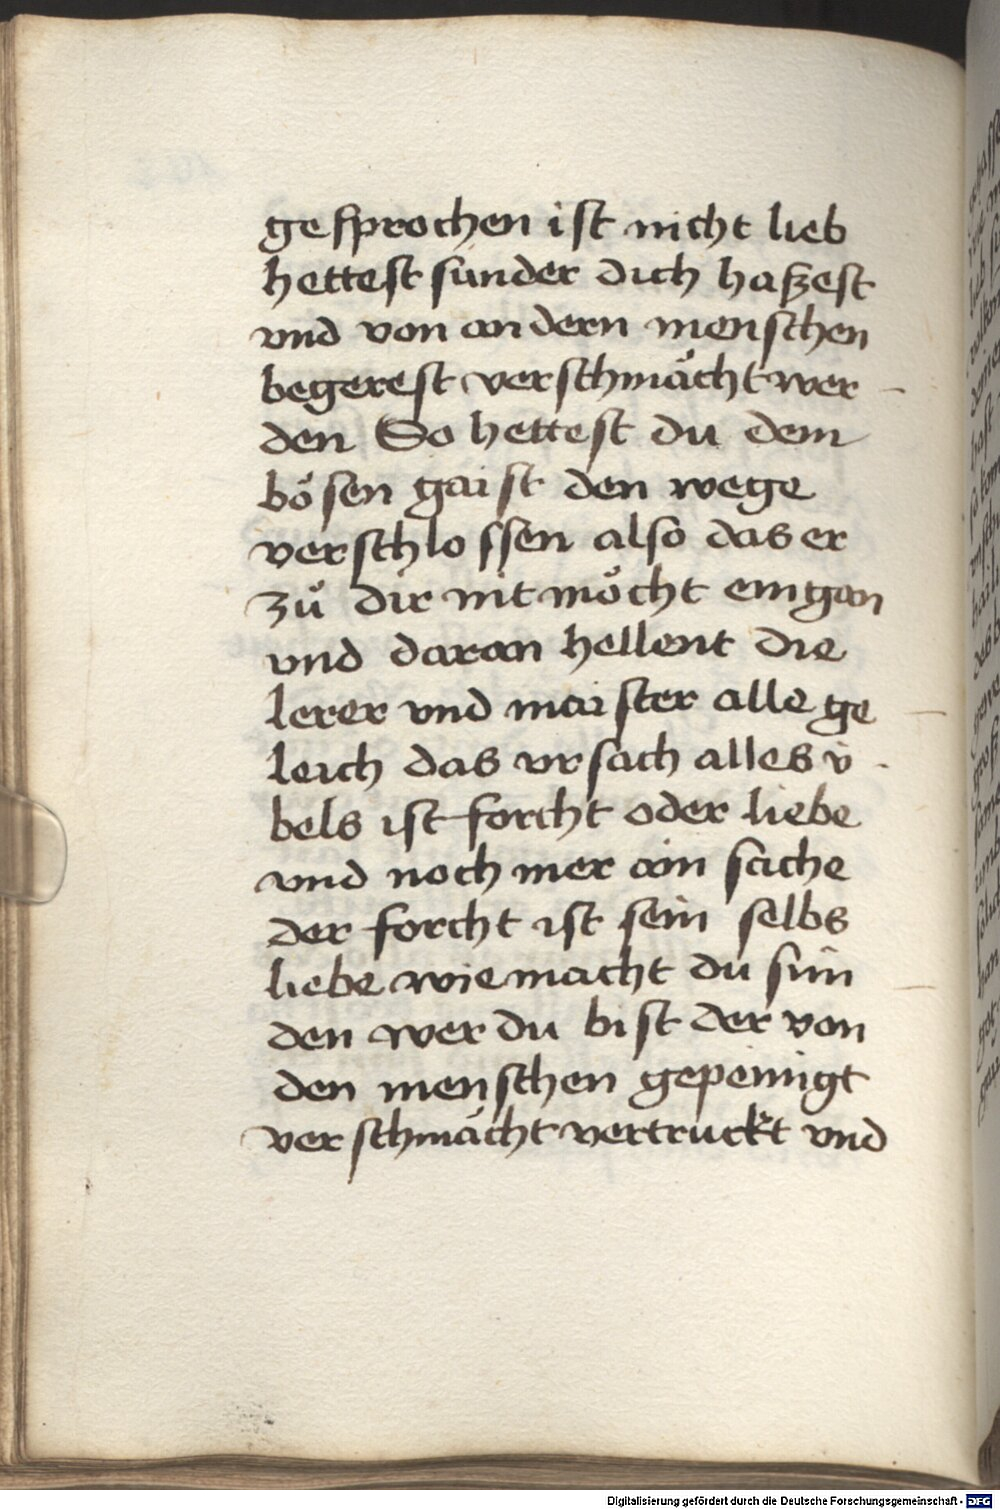 gesprochen ist nicht lieb
hettest sunder dich haßest
vnd von andern menschen
begerest verschmächt wer
den So hettest du dem
bo᷎sen gaist den wege
verschlossen also das er
zuͦ dir nit moͤcht eingan
vnd daran hellent die
lerer vnd maister alle ge
leich das vrsach alles v̈
bels ist forcht oder liebe
vnd noch mer ain sache
der forcht ist sein selbs
liebe wie macht du sün
den wer du bist der von
den menschen gepeinigt
verschmächt vertruckt vnd
Digitalisierung gefördert durch die Deutsche Forschungsgemeinschaft - DFG